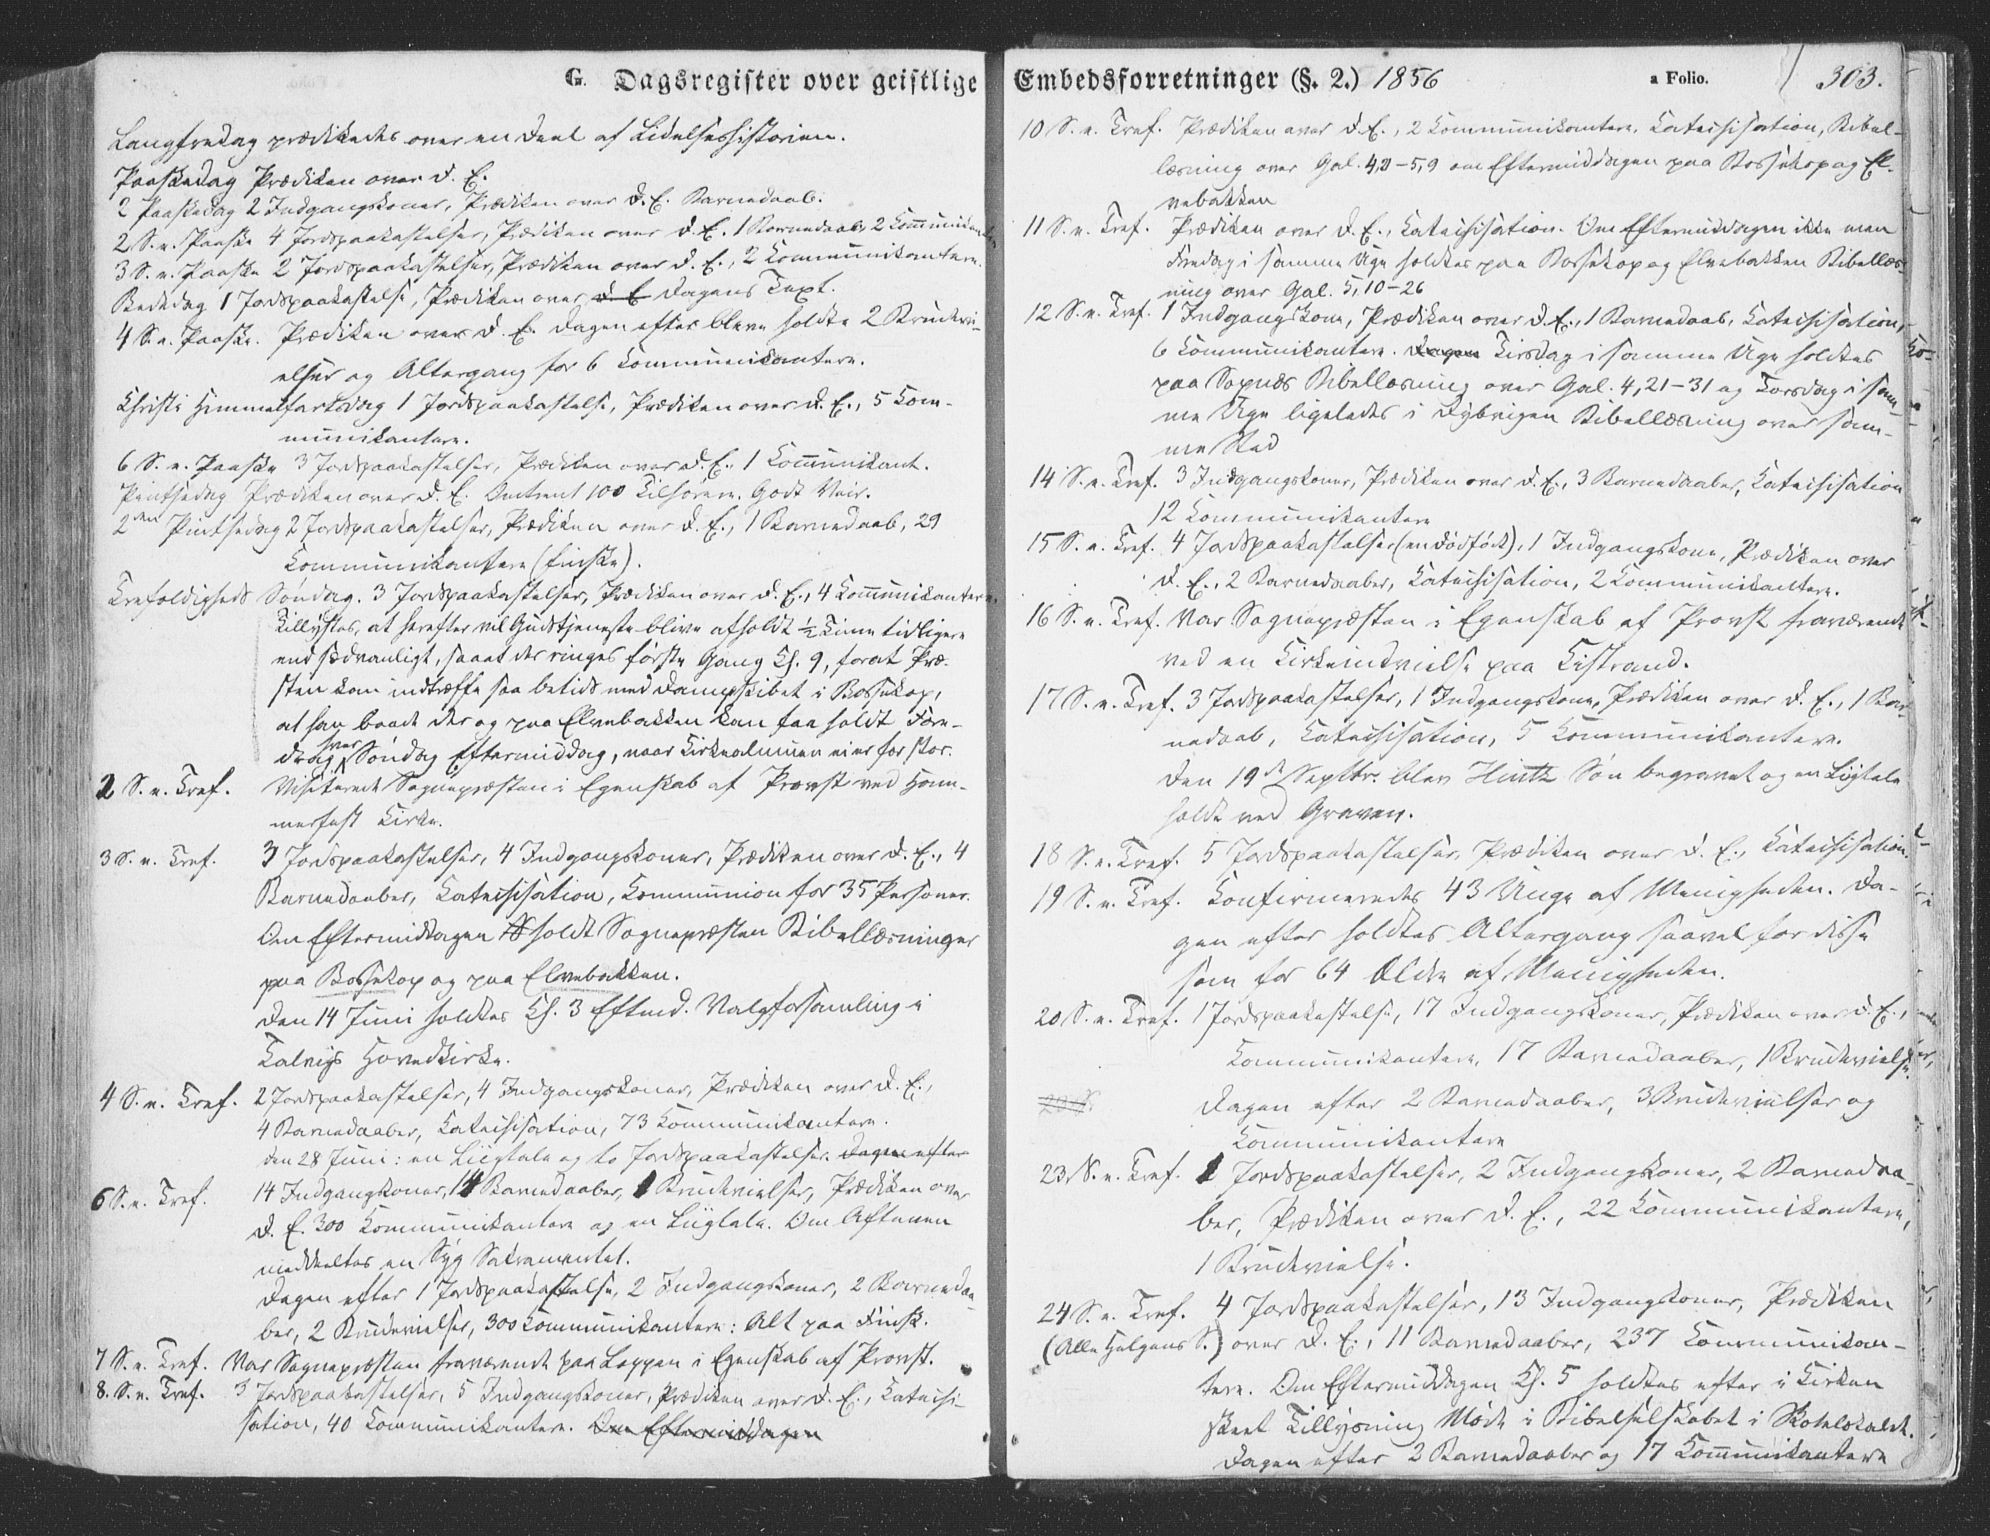 G. Dagsregister over geistlige
Langfredag prædikedes over en Deel af Lidelseshistorien.
Paaskedag Prædiken over d. E.
2 Paaskedag 2 Indgangskoner, Prædiken over d. E. Barnedaab.
2 S. e. Paaske 4 Jordspaakastelser, Prædiken over d. E. 1 Barnedaab, 2 Communikanter
3 S. e. Paaske 2 Jordspaakastelser, Prædiken over d. E., 2 Communikantere.
Bededag 1 Jordspaakastelse, Prædiken over d. E. Dagens Text.
4 S. e. Paaske. Prædiken over d. E. Dagen efter bleve holdte 2 Brudevi-
elser og Altergang for 6 Communicantere.
Christi Himmelfartsdag 1 Jordspaakastelse, Prædiken over d. E., 5 Com-
munikantere.
6 S. e. Paaske 3 Jordspaakastelser, Prædiken over d. E., 1 Communikant.
Pintsedag Prædiken over d. E. Omtrent 100 Tilhørere. Godt Veir.
2den Pintsedag 2 Jordspaakastelser, Prædiken over d. E., 1 Barnedaab, 29
Communikantere (finske).
Trefoldigheds Søndag. 3 Jordspaakastelser, Prædiken over d. E., 4 Communikantere,
Tillystes, at herefter vil Gudstjeneste blive afholdt ½ Time tidligere
end sædvanligt, saaat der ringes første Gang Kl. 9, forat Præ-
sten kan indtræffe saa betids med Dampskibet i Bossekop,
at han baade der og paa Elvebakken kan faa holdt Fore-
drag hver Søndag Eftermiddag, naar Kirkealmuen ei er for stor.
2 S. e. Tref. Visiterede Sognepræsten i Egenskab af Provst ved Ham-
merfest Kirke.
3 S. e. Tref. 3 Jordspaakastelser, 4 Indgangskoner, Prædiken over d. E., 4
Barnedaaber, Catechisation, Communion for 35 Personer.
Om Eftermiddagen holdt Sognepræsten Bibellæsninger
paa Bossekop og paa Elvebakken.
Den 14 Juni holdtes Kl. 3 Efterm. Valgforsamling i
Talvigs Hovedkirke.
4 S. e. Tref. 2 Jordspaakastelser, 4 Indgangskoner, Prædiken over d. E.,
4 Barnedaaber, Catechisation, 73 Communikantere.
den 28 Juni: en Liigtale og to Jordspaakastelser. Dagen efter
6 S. e. Tref. 14 Indgangskoner, 14 Barnedaaber, 1 Brudevielser, Prædiken over
d. E. 300 Communikantere og en Liigtale. Om Aftenen
meddeeltes en Syg Sakramentet.
Dagen efter 1 Jordspaakastelse, 2 Indgangskoner, 2 Barnedaa-
ber, 2 Brudevielser, 300 Communikantere: Alt paa Finsk.
7 S. e. Tref. Var Sognepræsten fraværende paa Loppen i Egenskab af Provst.
8. S. e. Tref. 3 Jordspaakastelser, 5 Indgangskoner, Prædiken over d. E., Catechi-
sation, 40 Communikantere. Om Eftermiddagen
Embedsforretninger (§. 2.) 1856 a Folio. 303.
10 S. e. Tref. Prædiken over d. E., 2 Communikantere, Catechisation, Bibel-
læsning over Gal. 4,8-5,9 om Eftermiddagen paa Bossekop og El-
vebakken
11 S. e. Tref. Prædiken over d. E., Catechisation. Om Eftermiddagen ikke men
Fredag i samme Uge holdtes paa Bossekop og Elvebakken Bibellæs-
ning over Gal. 5,10-26
12 S. e. Tref. 1 Indgangskone, Prædiken over d. E., 1 Barnedaab, Catechisation,
6 Communikantere. Dagen Tirsdag i samme Uge holdtes
paa Sopnæs Bibellæsning over Gal. 4,21-31 og Torsdag i sam-
me Uge ligeledes i Dybvigen Bibellæsning over sam-
me Sted
14 S. e. Tref. 3 Indgangskoner, Prædiken over d. E., 3 Barnedaaber, Catechisation
12 Communikantere
15 S. e. Tref. 4 Jordspaakastelser (en dødfødt), 1 Indgangskone, Prædiken over
d. E., 2 Barnedaaber, Catechisation, 2 Communikantere.
16 S. e. Tref. Var Sognepræsten i Egenskab af Provst fraværende
ved en Kirkeindvielse paa Kistrand.
17 S. e. Tref. 3 Jordspaakastelser, 1 Indgangskone, Prædiken over d. E., 1 Bar-
nedaab, Catechisation, 5 Communikantere.
Den 19de Septbr. blev Hintz Søn begravet og en Liigtale
holdt ved Graven.
18 S. e. Tref. 5 Jordspaakastelser, Prædiken over d. E., Catechisation.
19 S. e. Tref. Confirmeredes 43 Unge af Menigheden. Da-
gen efter holdtes Altergang saavel for disse
som for 64 Ældre af Menigheden.
20 S. e. Tref. 1 Jordspaakastelse, 17 Indgangskoner, Prædiken over d. E.,
Communikantere, 17 Barnedaaber, 1 Brudevielse.
Dagen efter 2 Barnedaaber, 3 Brudevielser og
Communikantere
23 S. e. Tref. 1 Jordspaakastelser, 2 Indgangskoner, 2 Barnedaa-
ber, Prædiken over d. E., 22 Communikantere,
1 Brudevielse.
24 S. e. Tref. 4 Jordspaakastelser, 13 Indgangskoner, Prædiken
(Alle Helgens S.) over d. E., 11 Barnedaaber, 237 Communikan-
tere. Om Eftermiddagen Kl. 5 holdtes efter i Kirken
skeet Tillysning Møde i Bibelselskabet i Skolelokalet.
Dagen efter 2 Barnedaaber og 17 Communikantere